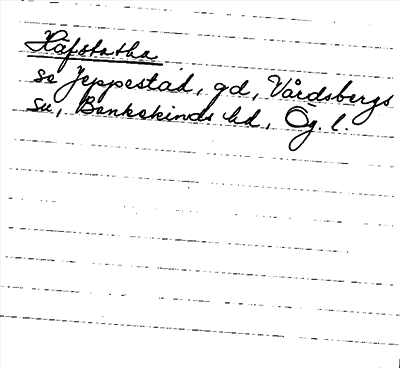 Häfstatha
se Jeppestad, gd, Vårdsbergs
sn, Bankekinds hd, Ög. l.